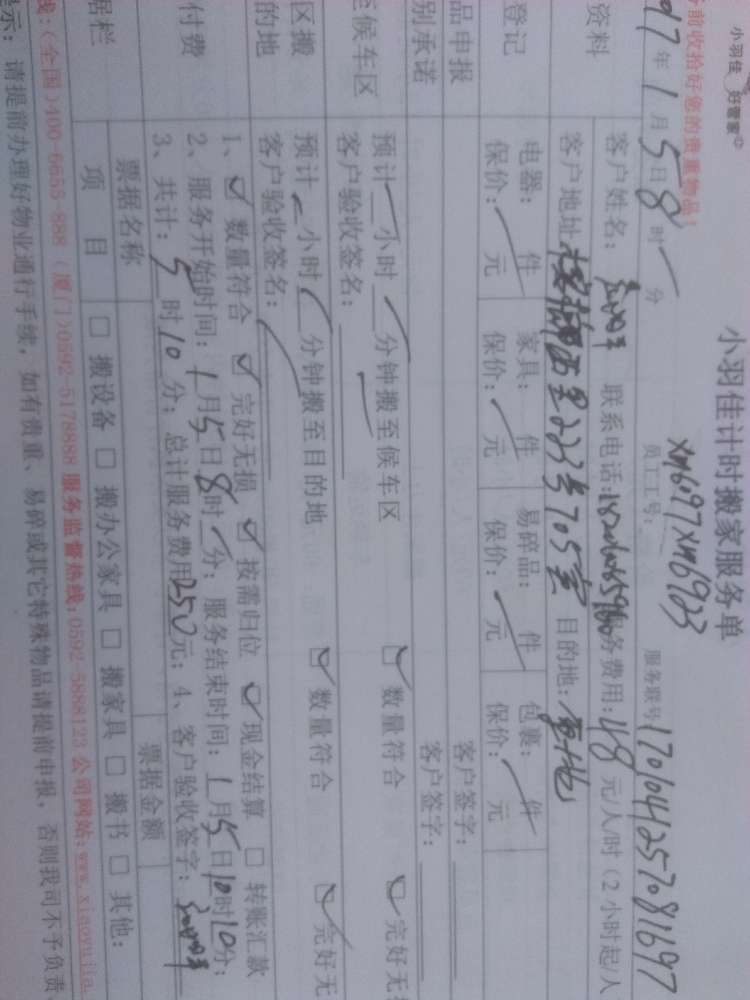 小羽佳 好管家
小羽佳计时搬家服务单
前收拾好您的贵重物品！
员工工号：XM6197 XM6923
服务联号：170104257081697
年1月5日8时 分
资料
客户姓名： 联系电话： 务费用：48元/人/时（2小时起/人
客户地址： 西里223号705室 目的地：
登记
电器： 件 家具： 件 易碎品： 件 包裹： 件
保价： 元 保价： 元 保价： 元 保价： 元
品申报
客户签字：
别承诺
客户签字：
候车区
预计 小时 分钟搬至候车区 数量符合 完好无
客户验收签名：
区搬
的地
预计 小时 分钟搬至目的地 数量符合 完好无
客户验收签名：
付费
1、数量符合 完好无损 按需归位 现金结算 转账汇款
2、服务开始时间：1月5日8时 分；服务结束时间：1月5日10时10分；
3、共计：5时10分；总计服务费用250元；4、客户验收签字：
据栏
票据名称 票据金额
项目 搬设备 搬办公家具 搬家具 搬书 其他：
线：(全国)400-6656-888 (厦门)0592-5178888 服务监督热线：0592-5888123 公司网站：www.xiaoyujia.
示：请提前办理好物业通行手续，如有贵重、易碎或其它特殊物品请提前申报，否则我司不予负责